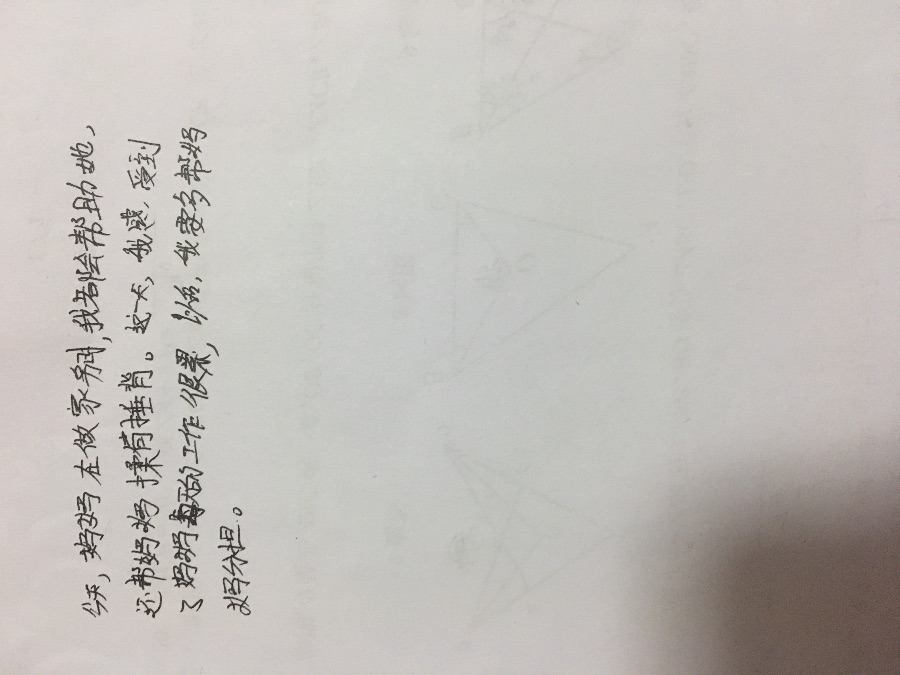 今天，妈妈在做家务时，我都会帮助她，
还帮妈妈揉肩捶背。这一天，我感受到
了妈妈每天的工作很累，以后，我要多帮妈
妈分担。